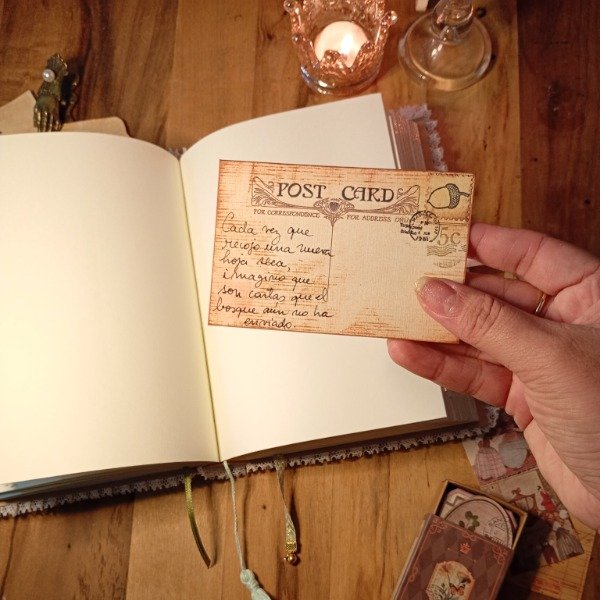 POST CARD
FOR CORRESPONDENCE
FOR ADDRESS ONLY
5¢
Cada vez que
recojo una nueva
hoja seca,
imagino que
son cartas que el
bosque aún no ha
enviado.